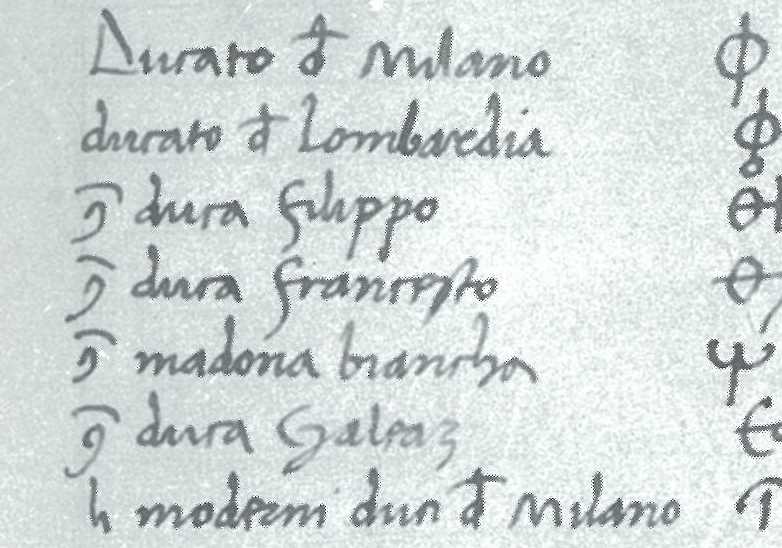 Ducato đ Milano
ducato đ lombardia
9̄ duca filippo
9̄ duca francesco
9̄ madona biancha
9̄ duca Galeaz
li moderni duci đ Milano